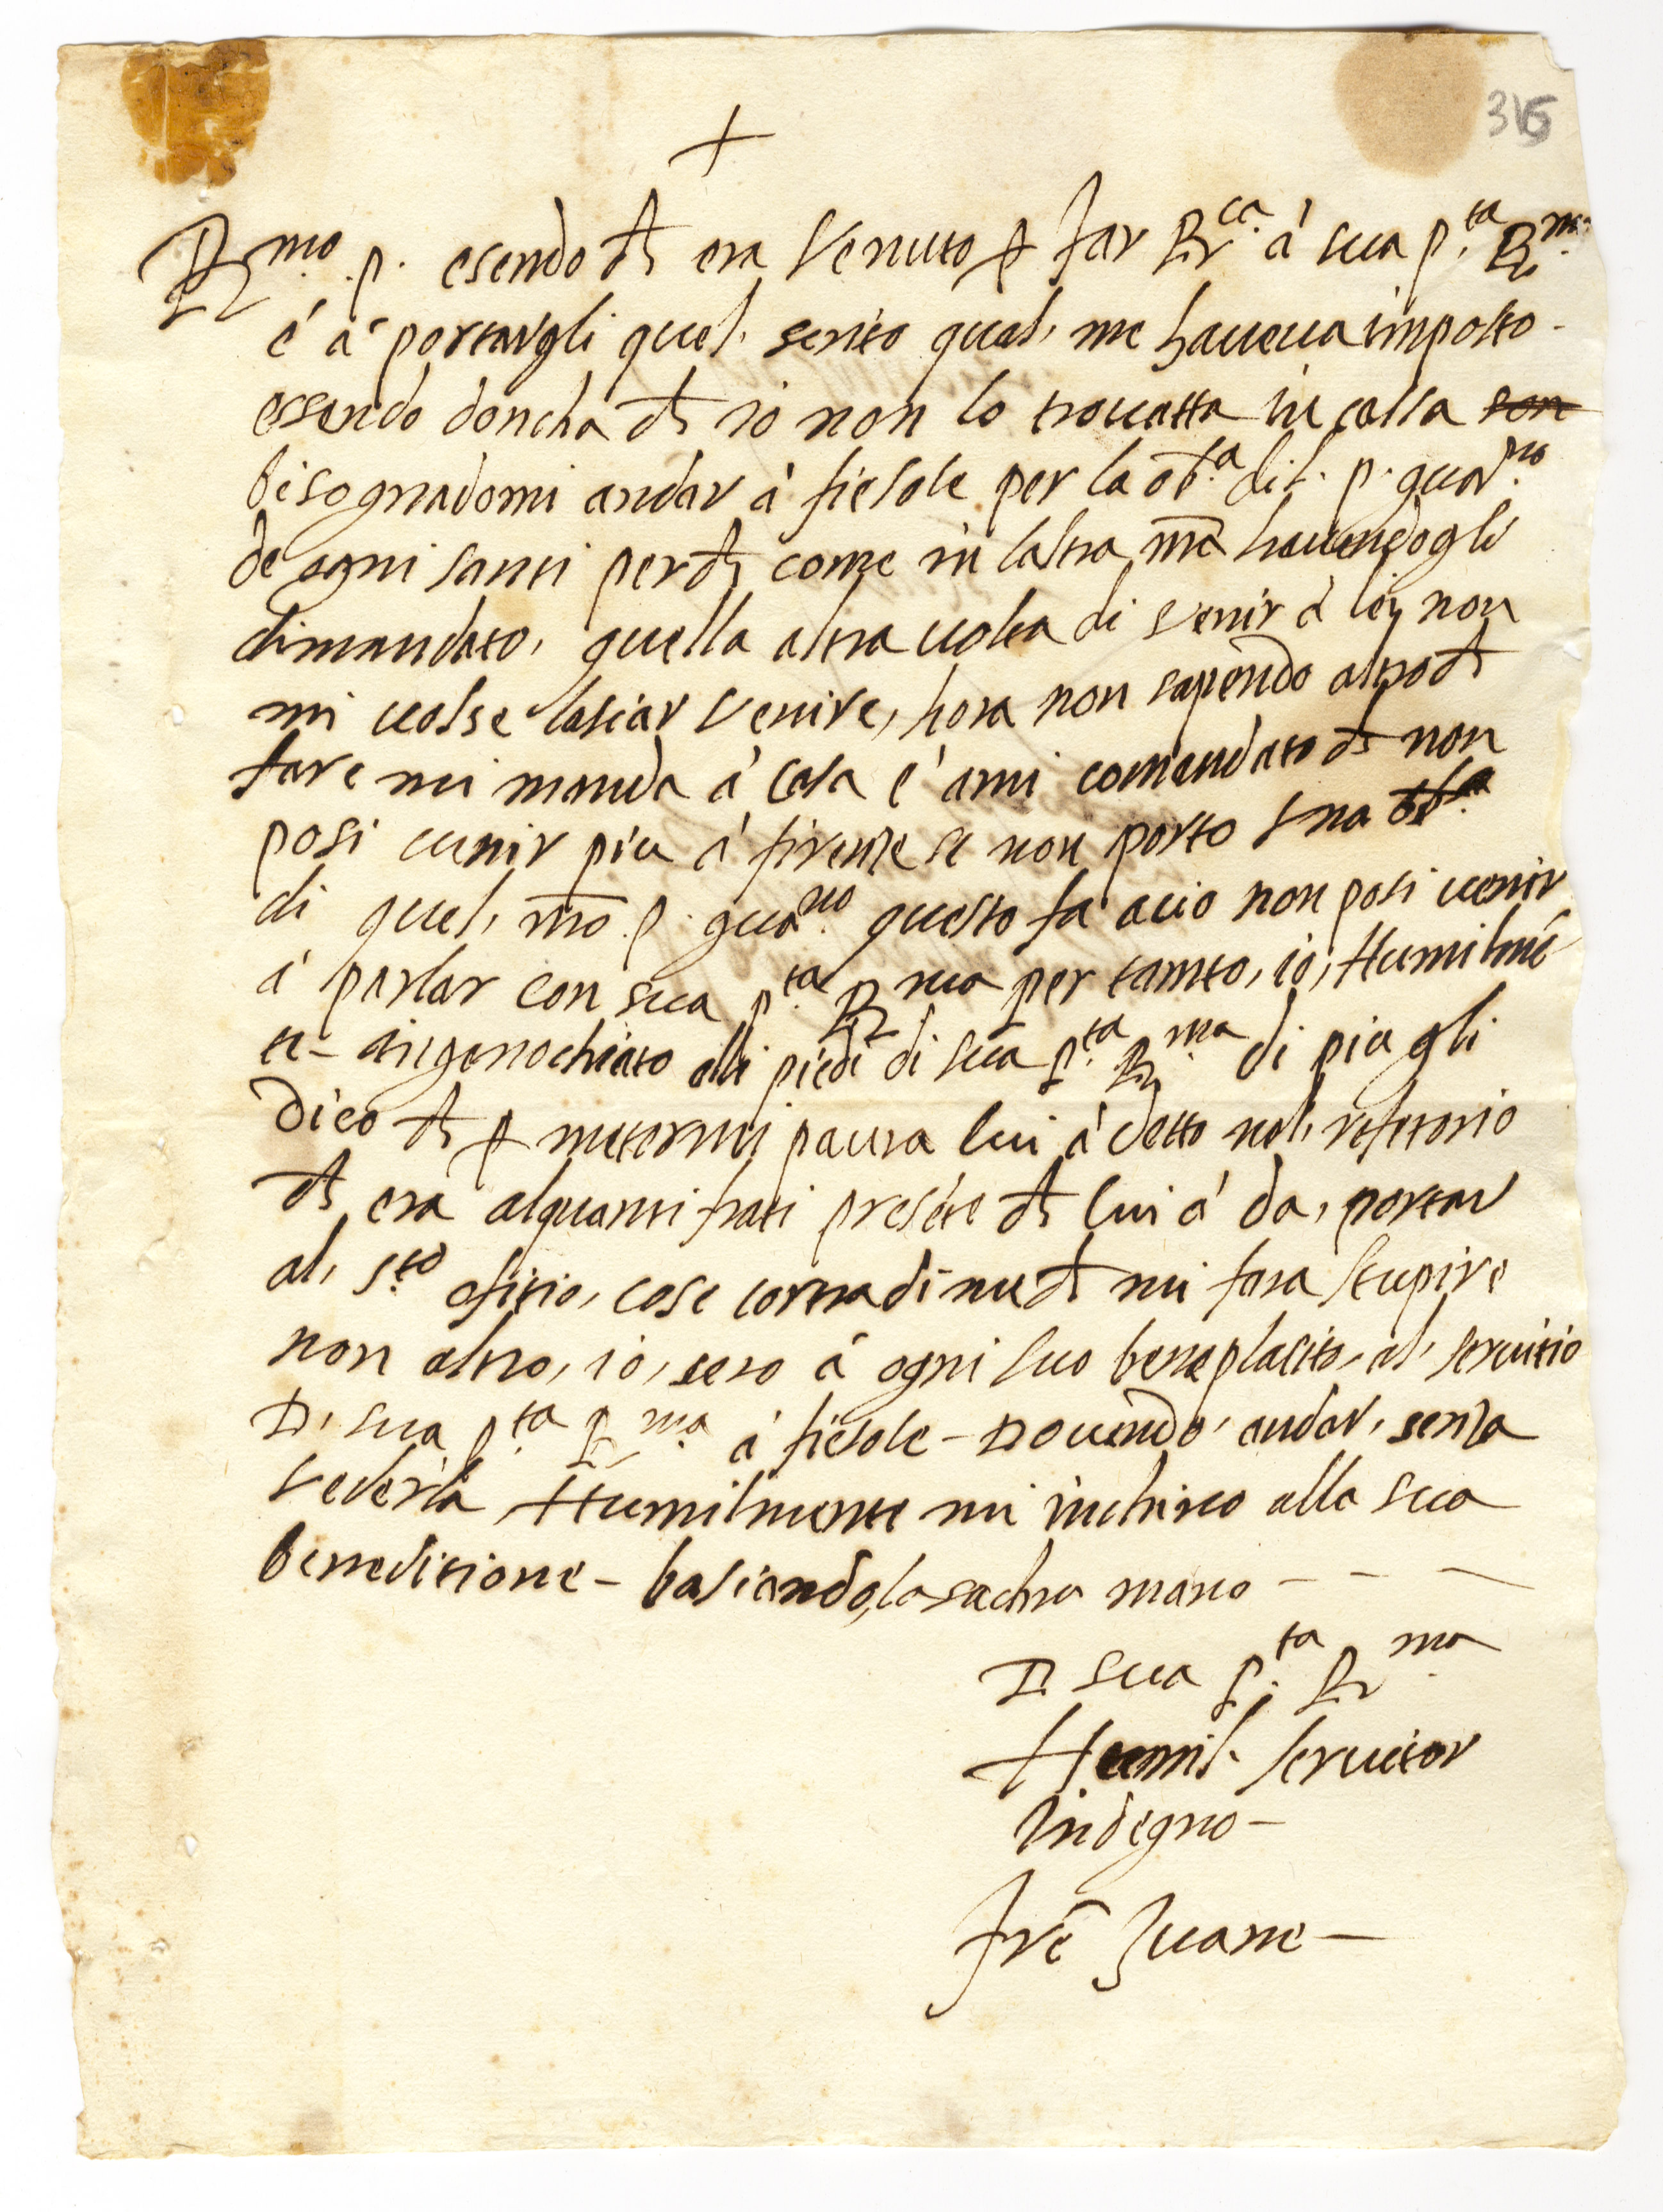 315
+
R.mo p. esendo ch era venuto p far R.ca à sua p.ta R.ma
é á portargli quel, scrito qual, me haueua imposto -
essendo doncha ch io non lo trouatta in cassa son
bisognadomi andar à fiesole per la ob.a dil. p. guar.no
de ogni santi perch come in laltra mā hauendogli
dimandato, quella altra uolta di venir à lei non
mi uolse lasiar venire, hora non sapendo altro ch
fare mi manda á Casa é ami comandato ch non
posi uenir piu á firenze se non porto una ob.a
di quel, mō. p. gua.no questo fa acio non posi uenir
á parlar con sua p.ta R ma per tanto, io, Humilmē
te - ingenochiato alli piedi di sua p.ta R.ma di piu gli
Dico ch p metermi paura lui á detto nel, refetorio
ch era alquanti frati presēte ch lui á da, portar
al, s.to ofitio, cose contra di me ch mi fara stupire
non altro, io, sero á ogni suo beneplacito, al, seruitio
D, sua p.ta R ma á fiesole - Douendo, andar, senza
vederla Humilmente mi inchino alla sua
beneditione - basiando, la sachra mano - - -
D sua p.ta R ma
Humil. seruitor
Indegno -
frē Zuane -